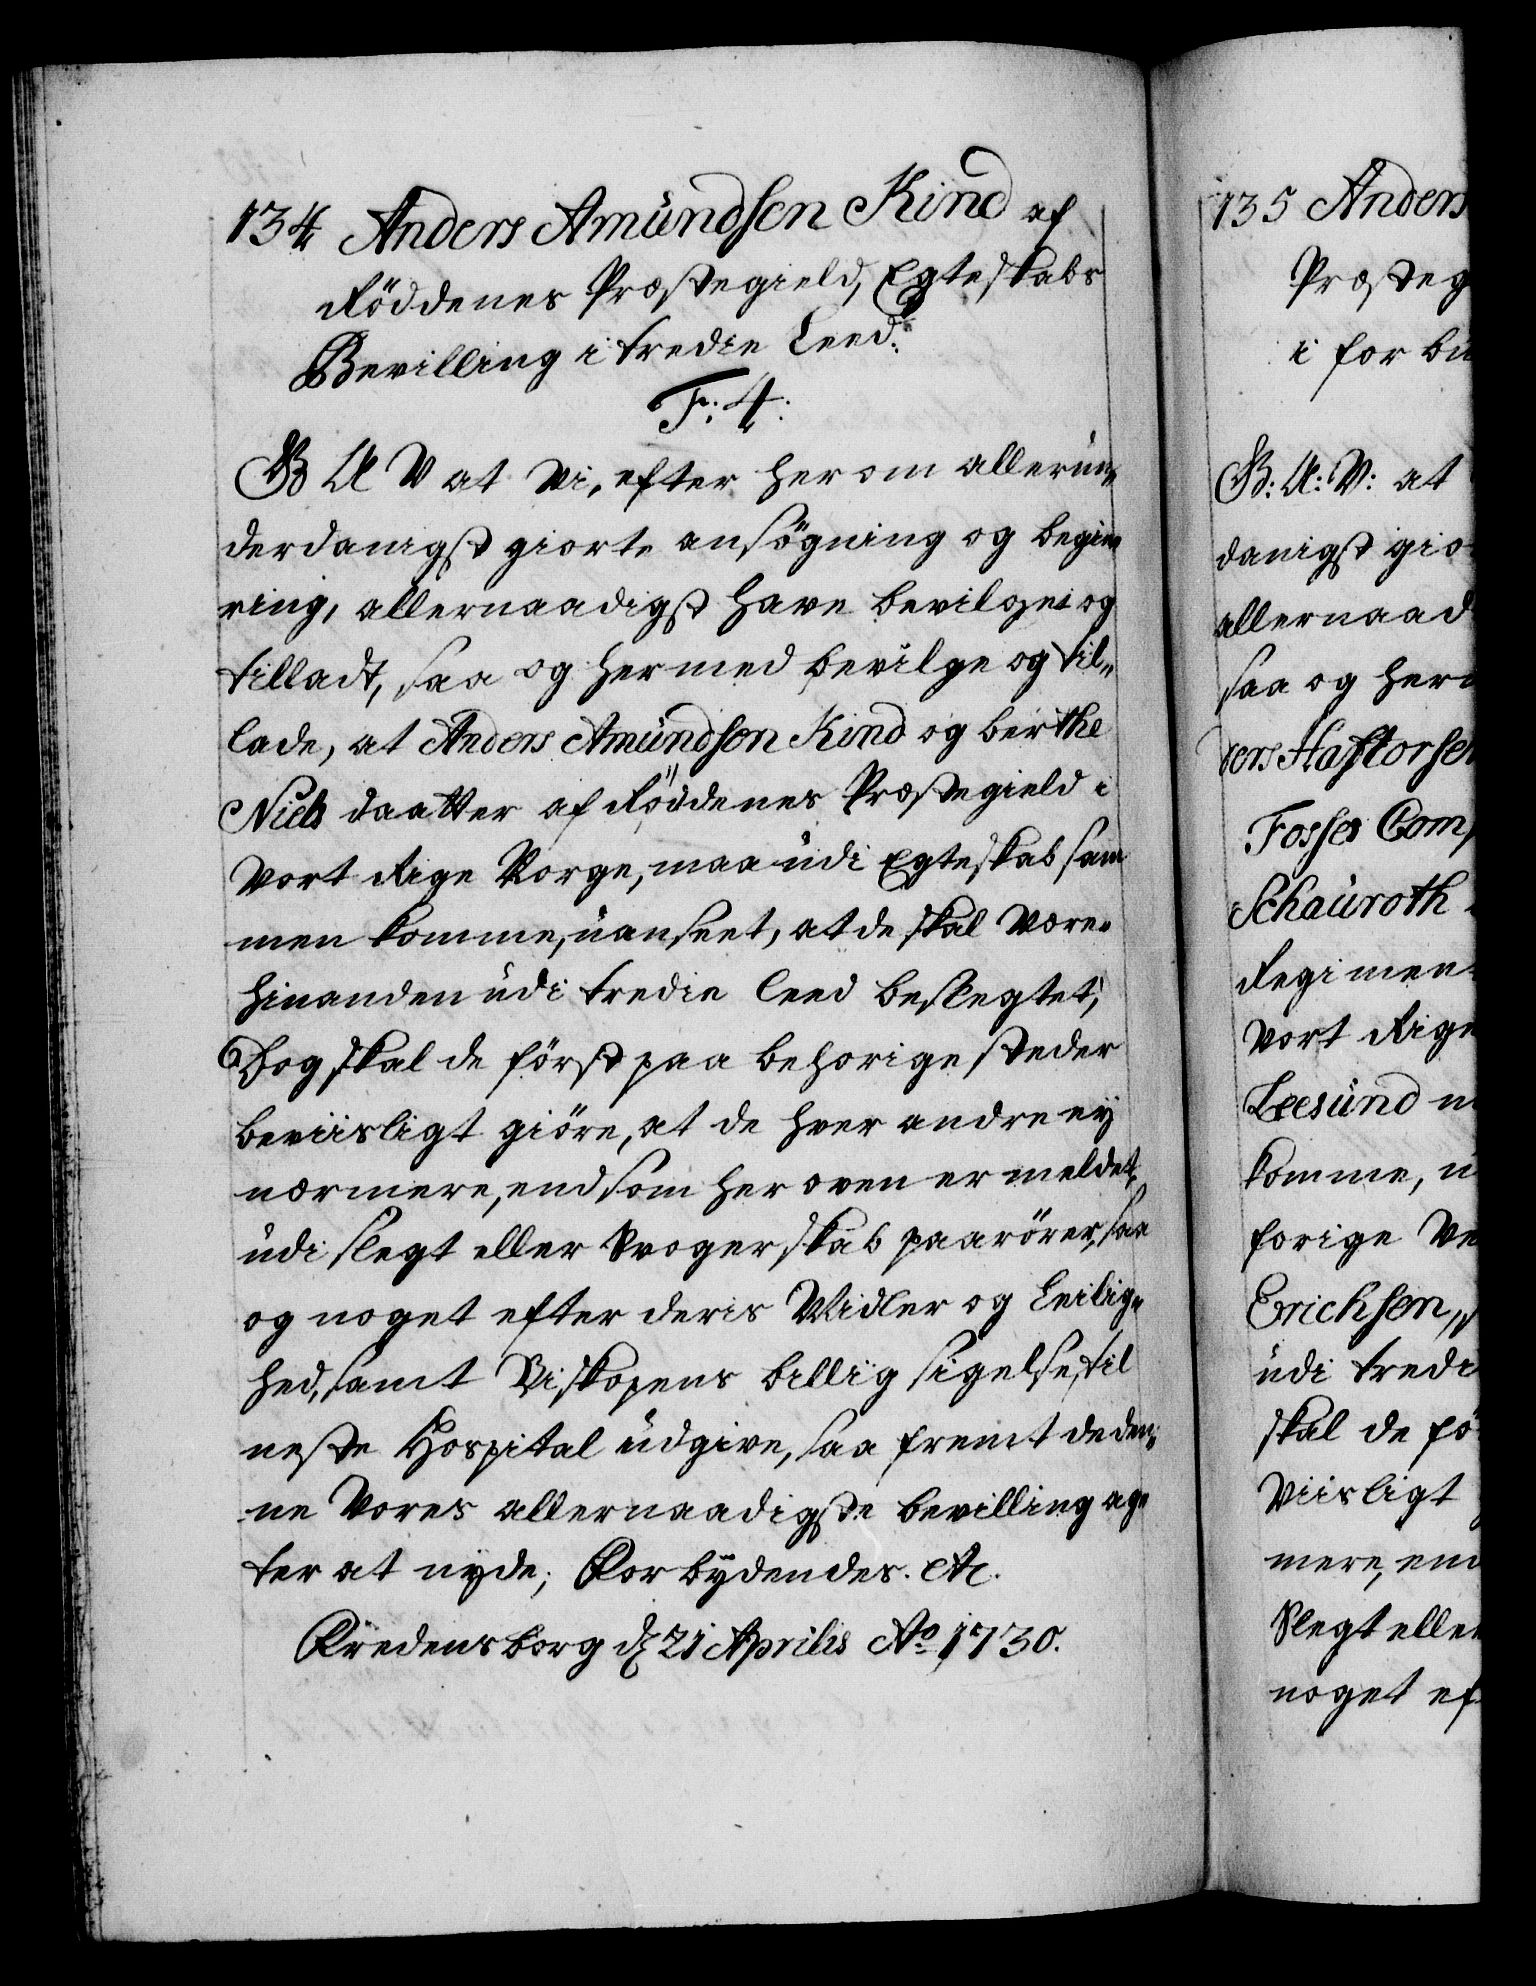 134 Anders Amundsen Kind af
Röddenes Præstegield, Egteskabs
Bevilling i tredie Leed.
F: 4.
G A V at Vi, efter her om allerun-
derdanigst giorte ansögning og begie-
ring, allernaadigst have bevilget og
tilladt, saa og hermed bevilge og til-
lade, at Anders Amundsen Kind og berthe
Niels daatter af Röddenes Præstegield i
Vort Rige Norge, maa udi Egteskab sam
men komme, uanseet, at de skal Være
hinanden udi tredie leed beslegtet;
Dog skal de först paa behörige steder
beviisligt giöre, at de hver andre ey
nærmere, end som her oven er meldet,
udi slegt eller Svogerskab paarörer, saa
og noget efter deris Midler og Leilig-
hed, samt Biskopens billig sigelse, til
neste Hospital udgive, saa fremt de den-
ne Vores allernaadigste bevilling ag-
ter at nyde; Forbydendes. etc.
Fredensborg d. 21 Aprilis Ao 1730.
135 Anders
Præsteg
i for bu
G: A: V: at
danigst gio
allernaad
saa og her
ders Haftorsen
Fosses Comp
Schauroth
Regimen
Vort Rige
Leesund
komme, u
forige
Erichsen,
udi tredi
skal de fö
Viisligt
mere, end
Slegt eller
noget ef